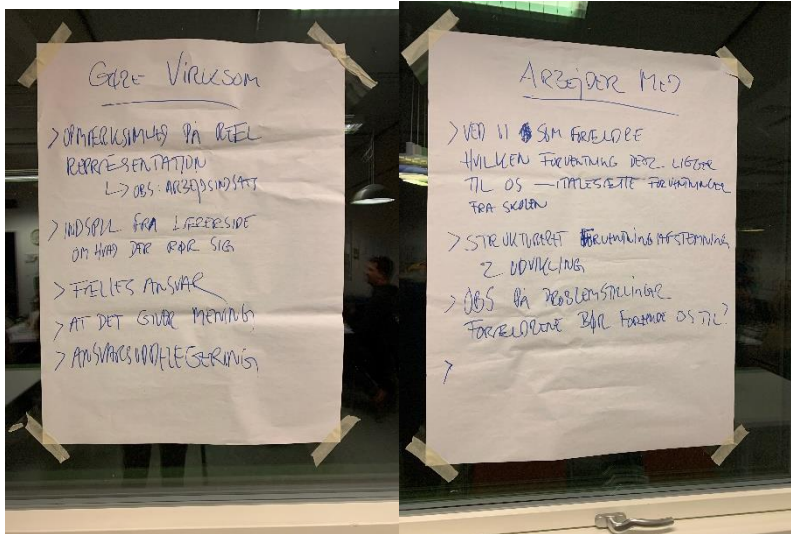 GØRE VIRKSOM
> OPMÆRKSOMHED PÅ REEL
REPRÆSENTATION
↳ OBS: ARBEJDSINDSATS
> INDSPIL FRA LÆRERSIDE
OM HVAD DER RØR SIG
> FÆLLES ANSVAR
> AT DET GIVER MENING
> ANSVARSUDDELEGERING
ARBEJDER MED
> VED VI SOM FORÆLDRE
HVILKEN FORVENTNING DER LIGGER
TIL OS — ITALESÆTTE FORVENTNINGER
FRA SKOLEN
> STRUKTURERET FORVENTNINGSAFSTEMNING
2 UDVIKLING
> OBS PÅ PROBLEMSTILLINGER
FORÆLDRENE BØR FORHOLDE OS TIL?
>